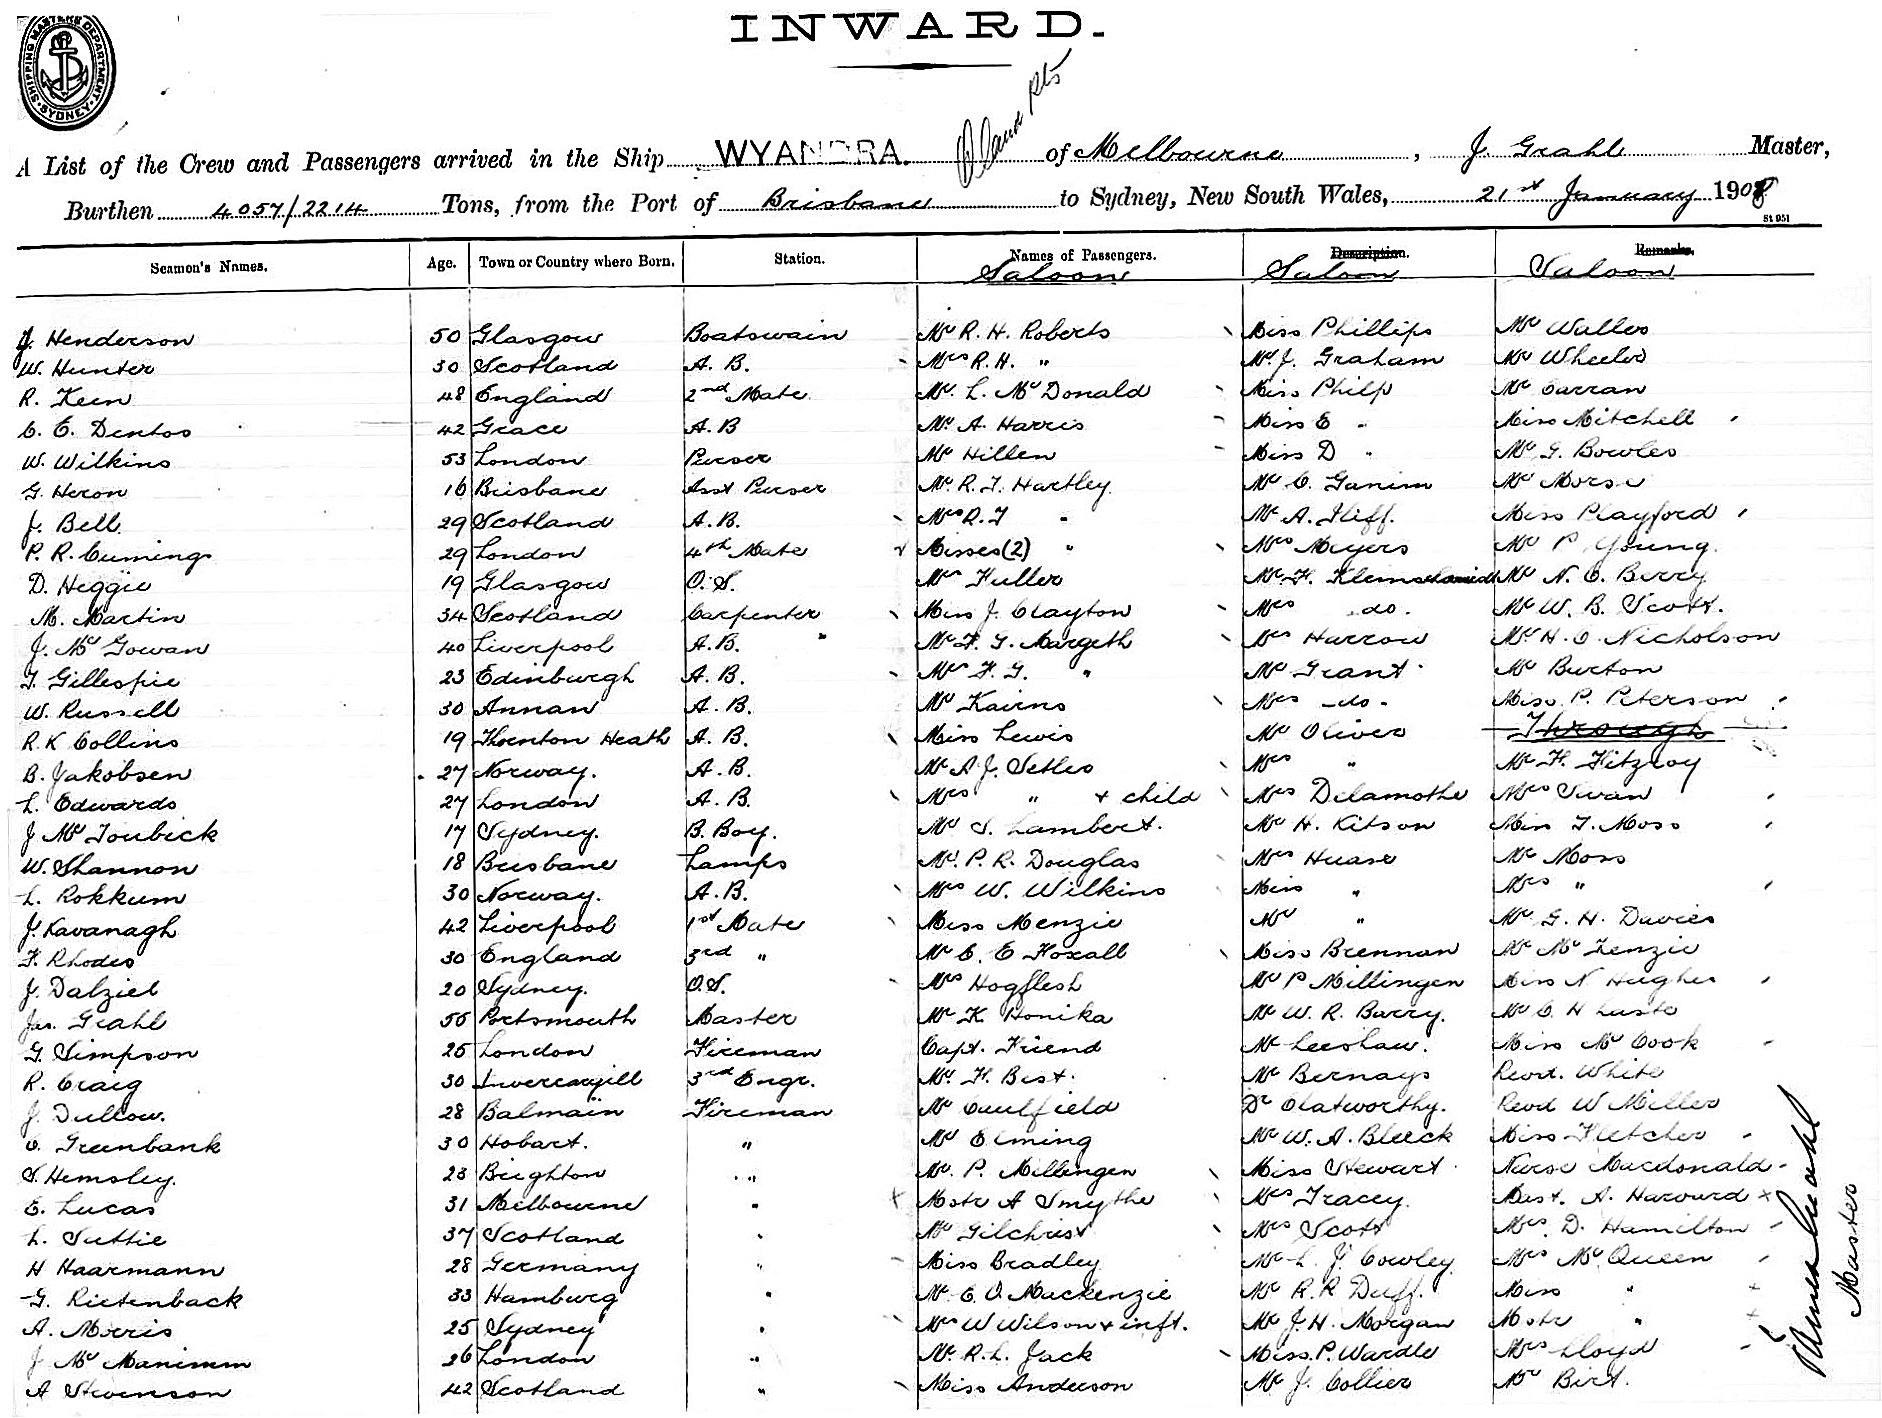 SHIPPING MASTERS DEPARTMENT. SYDNEY
INWARD.
A List of the Crew and Passengers arrived in the Ship WYANDRA. of Melbourne, J. Grahl Master,
Burthen 4057/2214 Tons, from the Port of Brisbane to Sydney, New South Wales, 21st January 1908
St 951
Seamen's Names. Age. Town or Country where Born. Station. Names of Passengers. Description. Remarks.
Saloon Saloon Saloon
J. Henderson 50 Glasgow Boatswain Mr R. H. Roberts Miss Phillips Mr Waller
W. Hunter 30 Scotland A. B. Mrs R. H. " Mr J. Graham Mr Wheeler
R. Keen 48 England 2nd Mate Mr. L. McDonald Miss Philp Mr Carran
C. E. Dentos 42 Grace A. B Mr A. Harris Miss E " Miss Mitchell
W. Wilkins 53 London Purser Mr Hillen Miss D " Mr G. Bowles
G. Heron 16 Brisbane Asst Purser Mr. R. T. Hartley Mr C. Ganim Mr Morse
J. Bell 29 Scotland A. B. Mrs R. T " Mr A. Iliff. Miss Playford
P. R. Cumings 29 London 4th Mate Misses (2) " Mrs Meyers Mr P Young.
D. Heggie 19 Glasgow O. S. Mrs Fuller Mr. F. Klemschmidt Mr N. C. Berry
M. Martin 34 Scotland Carpenter Miss J. Clayton Mrs do. Mr W. B. Scott.
J. McGowan 40 Liverpool A. B. Mr F. G. Margeth Mrs Harrow Mr. H. C. Nicholson
T. Gillespie 23 Edinburgh A. B. Mrs F. G. " Mr Grant Mr Burton
W. Russell 30 Annan A. B. Mr Kairns Mrs -do- Miss P. Peterson
R. K Collins 19 Thornton Heath A. B. Miss Lewis Mr Oliver Through
B. Jakobsen 27 Norway. A. B. Mr A. J. Setles Mrs " Mr F. Fitzroy
L. Edwards 27 London A. B. Mrs " + child Mrs Delamothe Mrs Swan
J McToubick 17 Sydney. B. Boy. Mr S. Lambert. Mr H. Kitson Miss T. Moss
W. Shannon 18 Brisbane Lamps Mr. P. R. Douglas Mrs Huase Mr Moss
L. Rokkum 30 Norway. A. B. Mrs W. Wilkins Miss " Mrs "
J. Kavanagh 42 Liverpool 1st Mate Miss Menzie Mr " Mr G. H. Davies
F. Rhodes 30 England 3rd " Mr C. E Foxall Miss Brennan Mr McKenzie
J. Dalziel 20 Sydney. O. S. Mrs Hogflesh Mr P Millingen Miss N Hughes
Jas. Grahl 55 Portsmouth Master Mr K. Honika Mr W. R. Barry. Mr C. H Luste
G. Simpson 25 London Fireman Capt. Friend Mr Leeshaw. Miss McCook
R. Craig 30 Invercargill 3rd Engr. Mr. F. Best. Mr Bernays Revd. White
J. Dullow. 28 Balmain Fireman Mr Caulfield Dr Clatworthy. Revd W Miller
Greenbank 30 Hobart. " Mr Elming Mr W. A. Bleeck Miss Fletcher
S. Hemsley. 23 Brighton " Mr. P. Millengen Miss Stewart Nurse Macdonald
E. Lucas 31 Melbourne " Mstr A Smythe Mrs Tracey. Mast. A. Harvurd
L. Suttie 37 Scotland " Mr Gilchrist Mrs Scott Mrs. D. Hamilton
H Haarmann 28 Germany " Miss Bradley Mr L. J. Cowley Mrs McQueen
G. Rietenback 33 Hamburg " Mr. C. O. Mackenzie Mr R. R Duff. Miss "
A. Morris 25 Sydney " Mrs W Wilson + inft. Mr J. H. Morgan Mstr "
J McManimm 26 London " Mr. R. L. Jack Miss. P. Wardle Mrs Lloyd
A Stevenson 42 Scotland " Miss Anderson Mr J. Collier Mr Birt.
James Grahl
Master